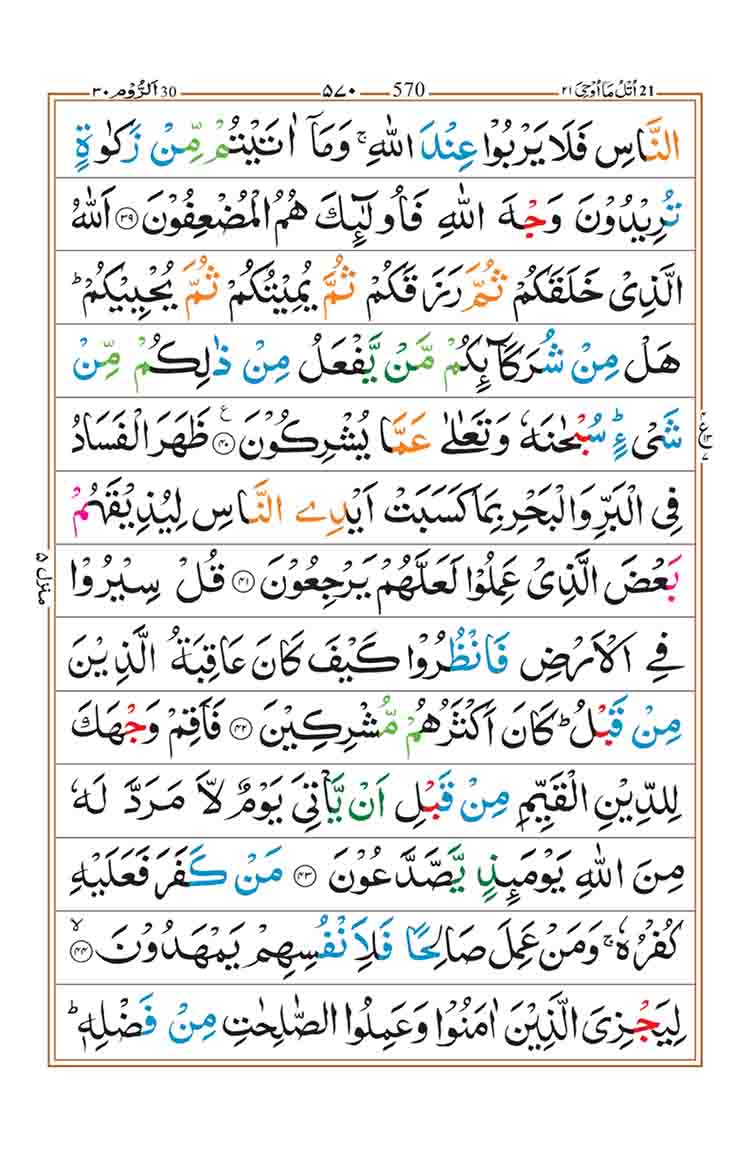 اُتْلُ مَاۤ اُوْحِیَ ٢١ 21 570 ٥٧٠ اَلرُّوْم ٣٠ 30
النَّاسِ فَلَا یَرْبُوْا عِنْدَ اللّٰهِ ۚ وَمَاۤ اٰتَیْتُمْ مِّنْ زَكٰوةٍ
تُرِیْدُوْنَ وَجْهَ اللّٰهِ فَاُولٰٓىِٕكَ هُمُ الْمُضْعِفُوْنَ ۝٣٩ اَللّٰهُ
الَّذِیْ خَلَقَكُمْ ثُمَّ رَزَقَكُمْ ثُمَّ یُمِیْتُكُمْ ثُمَّ یُحْیِیْكُمْ ؕ
هَلْ مِنْ شُرَكَآىِٕكُمْ مَّنْ یَّفْعَلُ مِنْ ذٰلِكُمْ مِّنْ
شَیْءٍ ؕ سُبْحٰنَهٗ وَتَعٰلٰی عَمَّا یُشْرِكُوْنَ ۝٤٠ ع ظَهَرَ الْفَسَادُ
فِی الْبَرِّ وَالْبَحْرِ بِمَا كَسَبَتْ اَیْدِی النَّاسِ لِیُذِیْقَهُمْ
بَعْضَ الَّذِیْ عَمِلُوْا لَعَلَّهُمْ یَرْجِعُوْنَ ۝٤١ قُلْ سِیْرُوْا
فِی الْاَرْضِ فَانْظُرُوْا كَیْفَ كَانَ عَاقِبَةُ الَّذِیْنَ
مِنْ قَبْلُ ؕ كَانَ اَكْثَرُهُمْ مُّشْرِكِیْنَ ۝٤٢ فَاَقِمْ وَجْهَكَ
لِلدِّیْنِ الْقَیِّمِ مِنْ قَبْلِ اَنْ یَّاْتِیَ یَوْمٌ لَّا مَرَدَّ لَهٗ
مِنَ اللّٰهِ یَوْمَىِٕذٍ یَّصَّدَّعُوْنَ ۝٤٣ مَنْ كَفَرَ فَعَلَیْهِ
كُفْرُهٗ ۚ وَمَنْ عَمِلَ صَالِحًا فَلِاَنْفُسِهِمْ یَمْهَدُوْنَ ۝٤٤ ۙ
لِیَجْزِیَ الَّذِیْنَ اٰمَنُوْا وَعَمِلُوا الصّٰلِحٰتِ مِنْ فَضْلِهٖ ؕ
منزل ٥